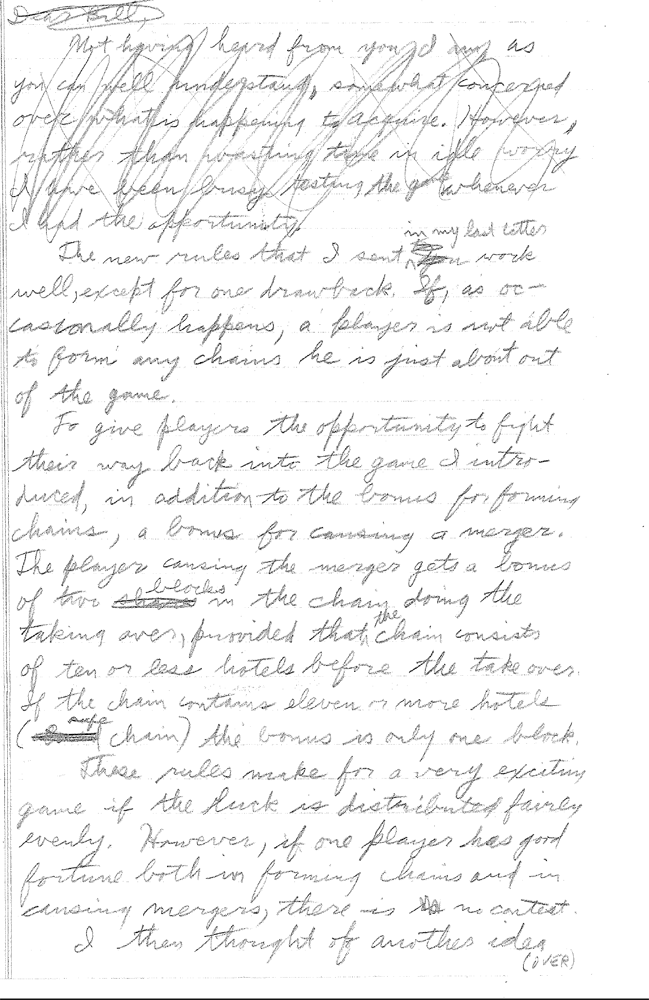 Dear Bill,
Not having heard from you I am as
you can well understand, somewhat concerned
over what is happening to Acquire. However,
rather than wasting time in idle worry
I have been busy testing the game whenever
I had the opportunity.
in my last letter
The new rules that I sent you work
well, except for one drawback. If, as oc-
casionally happens, a player is not able
to form any chains he is just about out
of the game.
To give players the opportunity to fight
their way back into the game I intro-
duced, in addition to the bonus for forming
chains, a bonus for causing a merger.
The player causing the merger gets a bonus
blocks
of two shares in the chain doing the
the
taking over, provided that chain consists
of ten or less hotels before the take over.
If the chain contains eleven or more hotels
safe
( chain) the bonus is only one block.
These rules make for a very exciting
game if the luck is distributed fairly
evenly. However, if one player has good
fortune both in forming chains and in
causing mergers, there is no contest.
I then thought of another idea
(OVER)